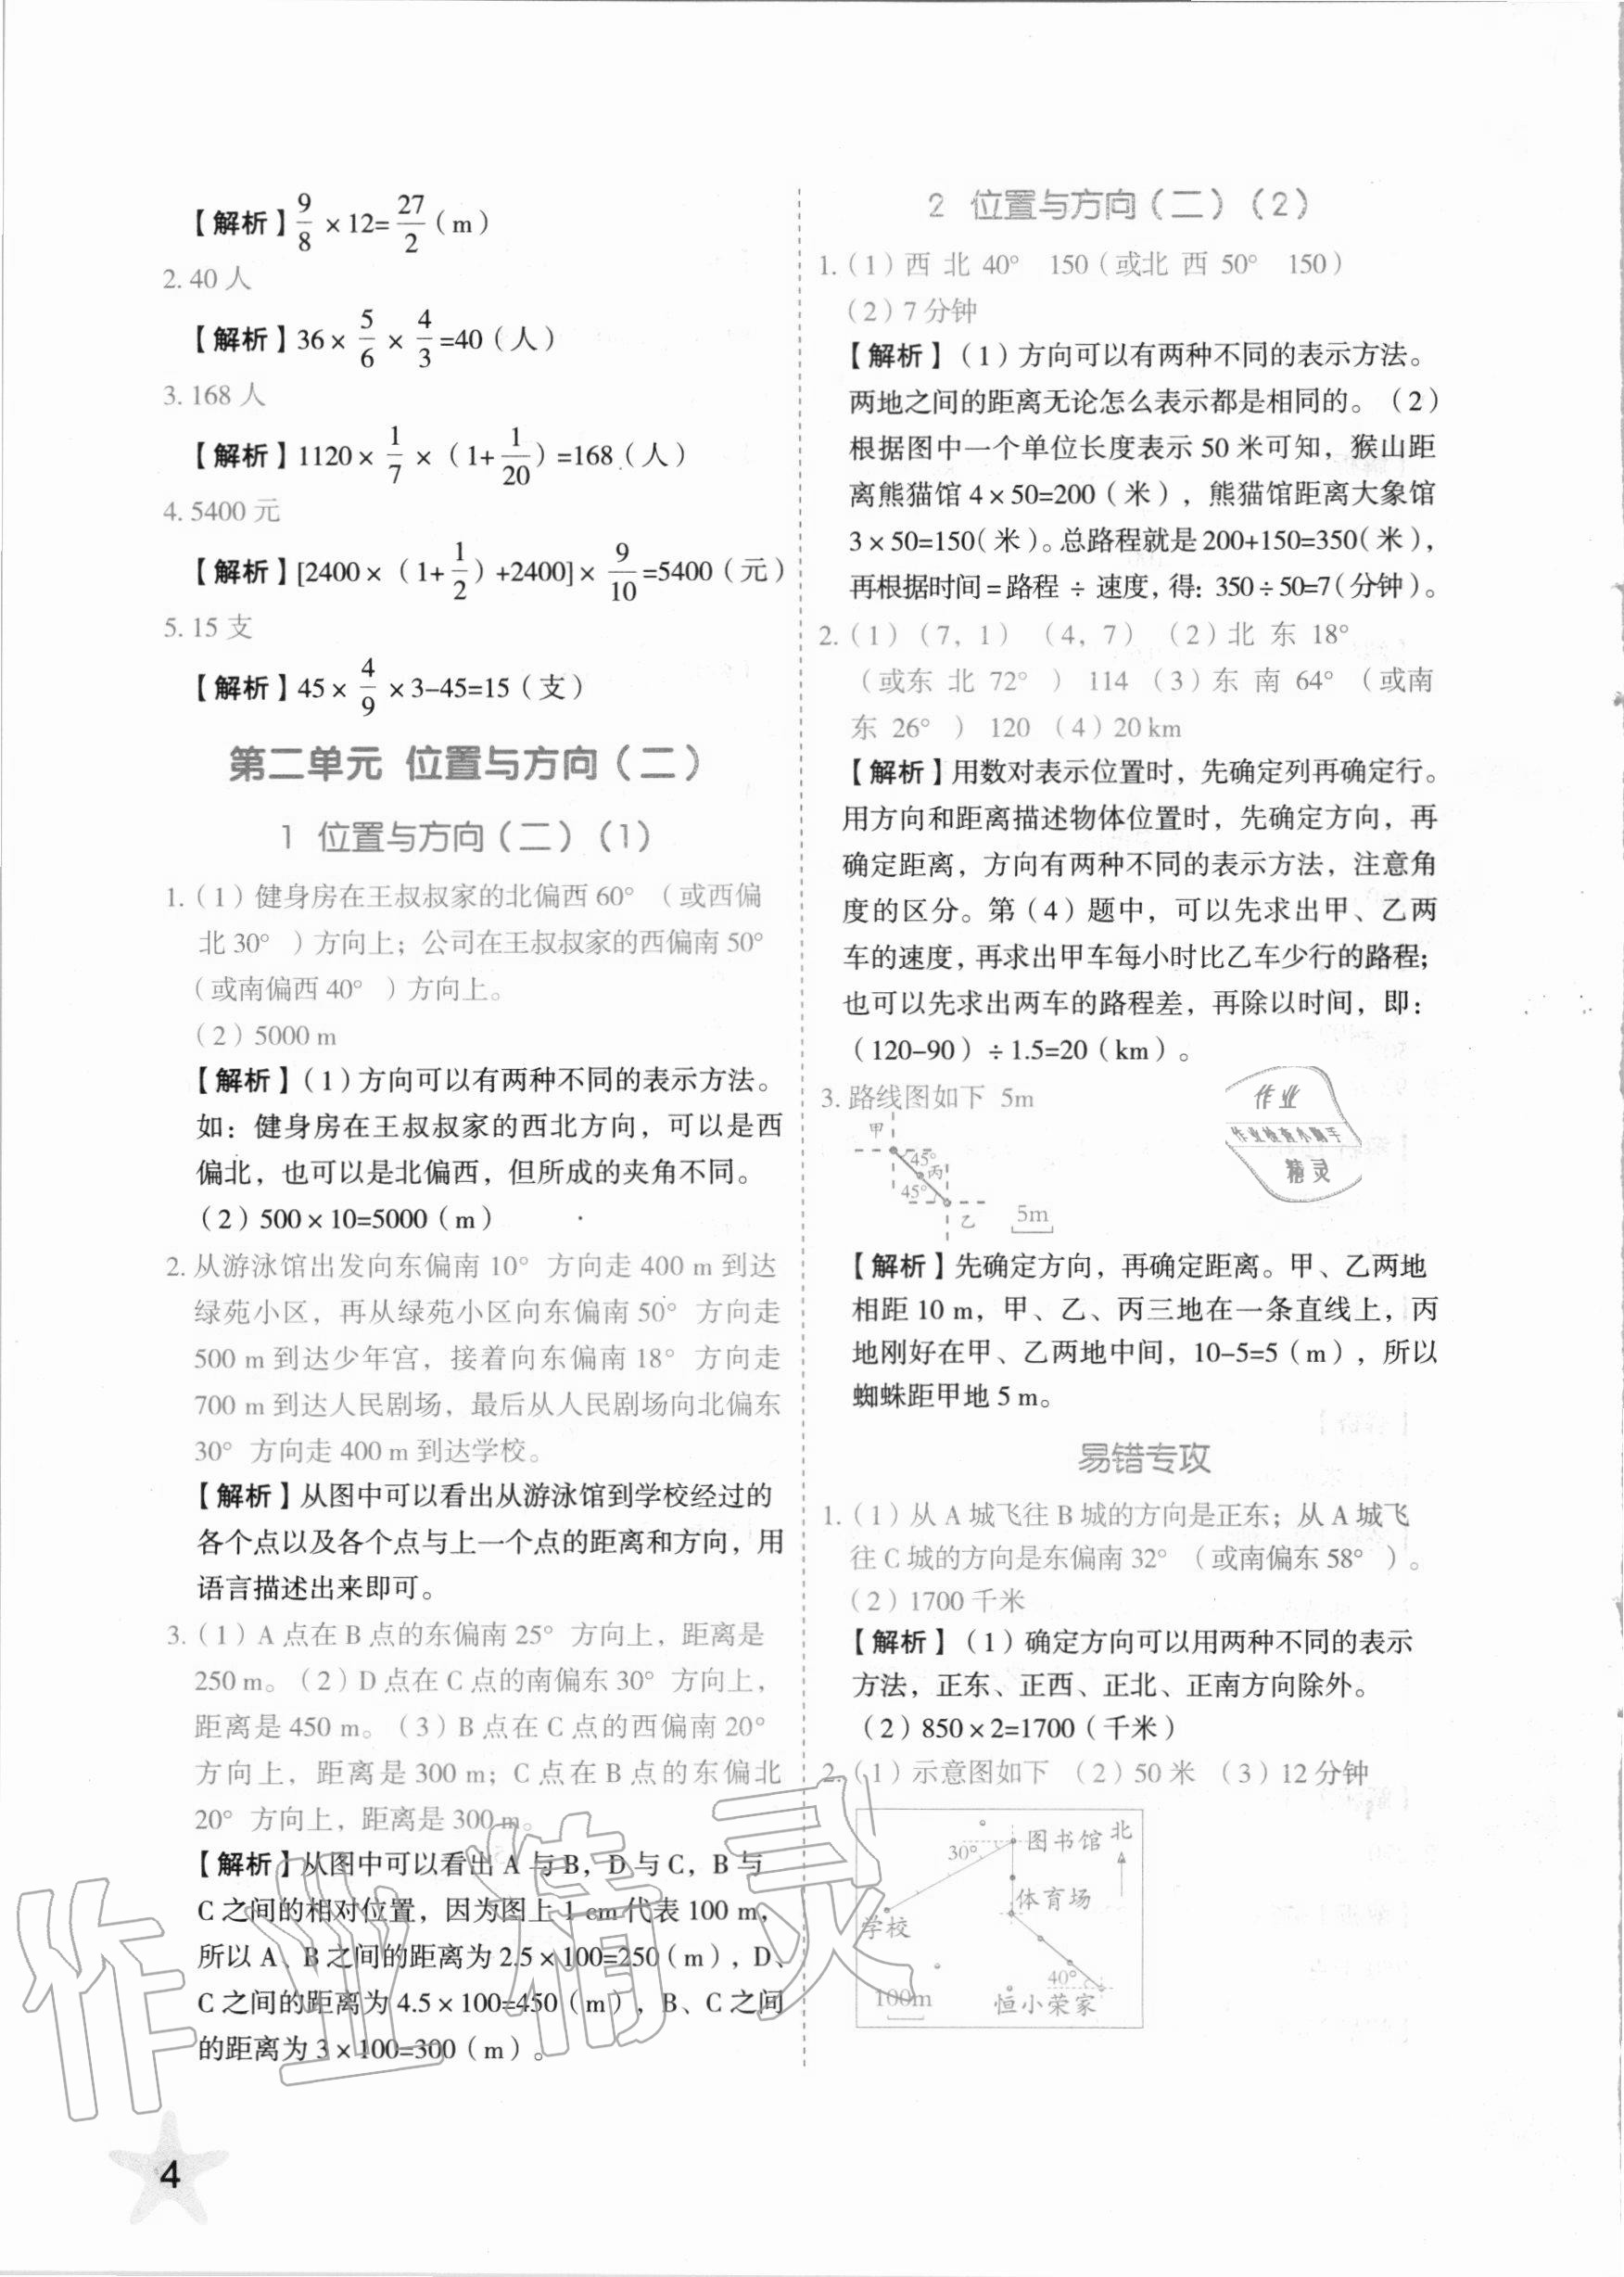 【解析】9/8×12=27/2（m）
2. 40 人
【解析】36×5/6×4/3=40（人）
3. 168 人
【解析】1120×1/7×（1+1/20）=168（人）
4. 5400 元
【解析】[2400×（1+1/2）+2400]×9/10=5400（元）
5. 15 支
【解析】45×4/9×3-45=15（支）
第二单元 位置与方向（二）
1 位置与方向（二）（1）
1.（1）健身房在王叔叔家的北偏西 60°（或西偏
北 30°）方向上；公司在王叔叔家的西偏南 50°
（或南偏西 40°）方向上。
（2）5000 m
【解析】（1）方向可以有两种不同的表示方法。
如：健身房在王叔叔家的西北方向，可以是西
偏北，也可以是北偏西，但所成的夹角不同。
（2）500×10=5000（m）
2. 从游泳馆出发向东偏南 10° 方向走 400 m 到达
绿苑小区，再从绿苑小区向东偏南 50° 方向走
500 m 到达少年宫，接着向东偏南 18° 方向走
700 m 到达人民剧场，最后从人民剧场向北偏东
30° 方向走 400 m 到达学校。
【解析】从图中可以看出从游泳馆到学校经过的
各个点以及各个点与上一个点的距离和方向，用
语言描述出来即可。
3.（1）A 点在 B 点的东偏南 25° 方向上，距离是
250 m。（2）D 点在 C 点的南偏东 30° 方向上，
距离是 450 m。（3）B 点在 C 点的西偏南 20°
方向上，距离是 300 m；C 点在 B 点的东偏北
20° 方向上，距离是 300 m。
【解析】从图中可以看出 A 与 B，D 与 C，B 与
C 之间的相对位置，因为图上 1 cm 代表 100 m，
所以 A、B 之间的距离为 2.5×100=250（m），D、
C 之间的距离为 4.5×100=450（m），B、C 之间
的距离为 3×100=300（m）。
4
2 位置与方向（二）（2）
1.（1）西 北 40° 150（或北 西 50° 150）
（2）7 分钟
【解析】（1）方向可以有两种不同的表示方法。
两地之间的距离无论怎么表示都是相同的。（2）
根据图中一个单位长度表示 50 米可知，猴山距
离熊猫馆 4×50=200（米），熊猫馆距离大象馆
3×50=150（米）。总路程就是 200+150=350（米），
再根据时间=路程÷速度，得：350÷50=7（分钟）。
2.（1）（7，1）（4，7）（2）北 东 18°
（或东 北 72°）114（3）东 南 64°（或南
东 26°）120（4）20 km
【解析】用数对表示位置时，先确定列再确定行。
用方向和距离描述物体位置时，先确定方向，再
确定距离，方向有两种不同的表示方法，注意角
度的区分。第（4）题中，可以先求出甲、乙两
车的速度，再求出甲车每小时比乙车少行的路程；
也可以先求出两车的路程差，再除以时间，即：
（120-90）÷1.5=20（km）。
3. 路线图如下 5m
甲
45°
丙
45°
乙
5m
作业
作业检查小助手
精灵
【解析】先确定方向，再确定距离。甲、乙两地
相距 10 m，甲、乙、丙三地在一条直线上，丙
地刚好在甲、乙两地中间，10-5=5（m），所以
蜘蛛距甲地 5 m。
易错专攻
1.（1）从 A 城飞往 B 城的方向是正东；从 A 城飞
往 C 城的方向是东偏南 32°（或南偏东 58°）。
（2）1700 千米
【解析】（1）确定方向可以用两种不同的表示
方法，正东、正西、正北、正南方向除外。
（2）850×2=1700（千米）
2.（1）示意图如下（2）50 米（3）12 分钟
图书馆 北
30°
体育场
学校
40°
100m
恒小荣家
作业精灵